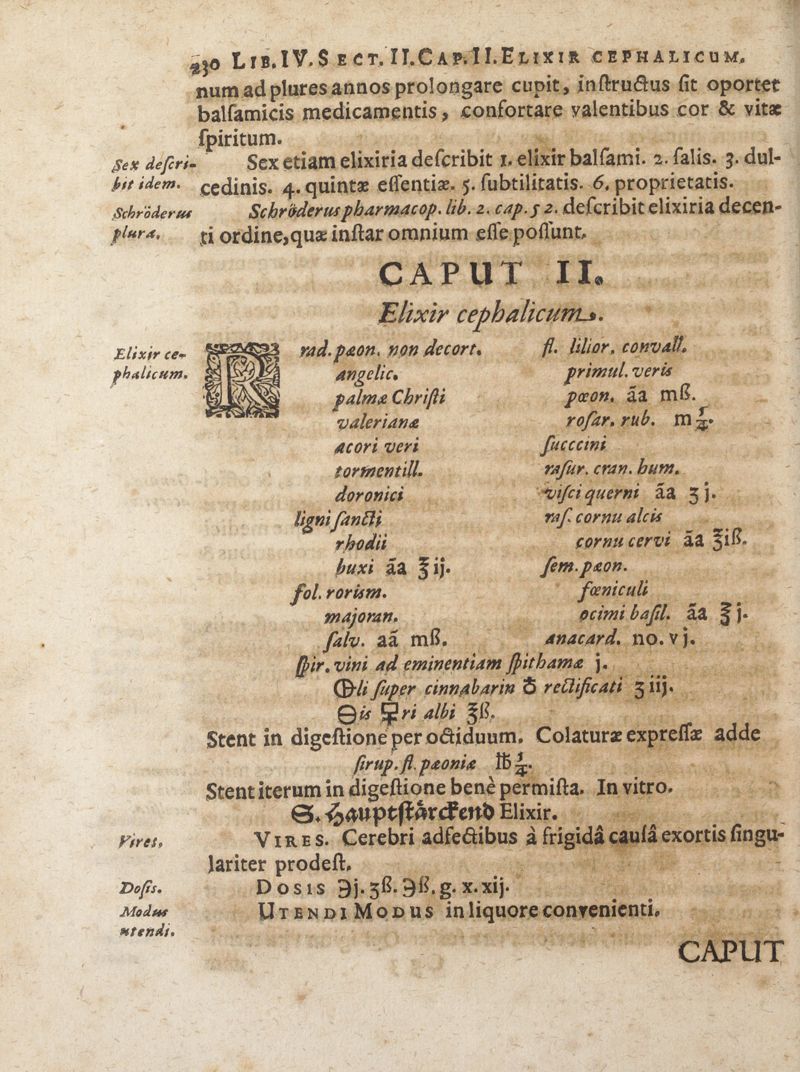 230 LIB. IV. SECT. II. CAP. II. ELIXIR CEPHALICUM.
num ad plures annos prolongare cupit, inſtructus ſit oportet
balſamicis medicamentis, confortare valentibus cor & vitæ
ſpiritum.
Sex deſcri-
bit idem.
Sex etiam elixiria deſcribit 1. elixir balſami. 2. ſalis. 3. dul-
cedinis. 4. quintæ eſſentiæ. 5. ſubtilitatis. 6. proprietatis.
Schröderus
plura.
Schröderus pharmacop. lib. 2. cap. 52. deſcribit elixiria decen-
ti ordine, quæ inſtar omnium eſſe poſſunt.
CAPUT II.
Elixir cephalicum.
Elixir ce-
phalicum.
℞ rad. pæon. non decort.
angelic.
palmæ Chriſti
valerianæ
acori veri
tormentill.
doronici
ligni ſancti
rhodii
buxi āā ℥ ij.
fol. rorism.
majoran.
ſalv. aā mß.
fl. lilior. convall.
primul. veris
pœon. āā mß.
roſar. rub. m ½.
ſucccini
raſur. cran. hum.
viſci querni āā ʒ j.
raſ. cornu alcis
cornu cervi āā ℥iß.
ſem. pæon.
fœniculi
ocimi baſil. āā ℥ j.
anacard. no. v j.
ſpir. vini ad eminentiam ſpithamæ j.
li ſuper cinnabarin ♁ rectificati ʒ iij.
is ri albi ℥ß.
Stent in digeſtione per octiduum. Colaturæ expreſſæ adde
ſirup. fl. pæoniæ ℔ ½.
Stent iterum in digeſtione benè permiſta. In vitro.
S. Hauptſtärckend Elixir.
Vires.
VIRES. Cerebri adfectibus à frigidâ cauſâ exortis ſingu-
lariter prodeſt.
Doſis.
DOSIS ℈j. ʒß. ℈ß. g. x. xij.
Modus
utendi.
UTENDI MODUS in liquore convenienti.
CAPUT